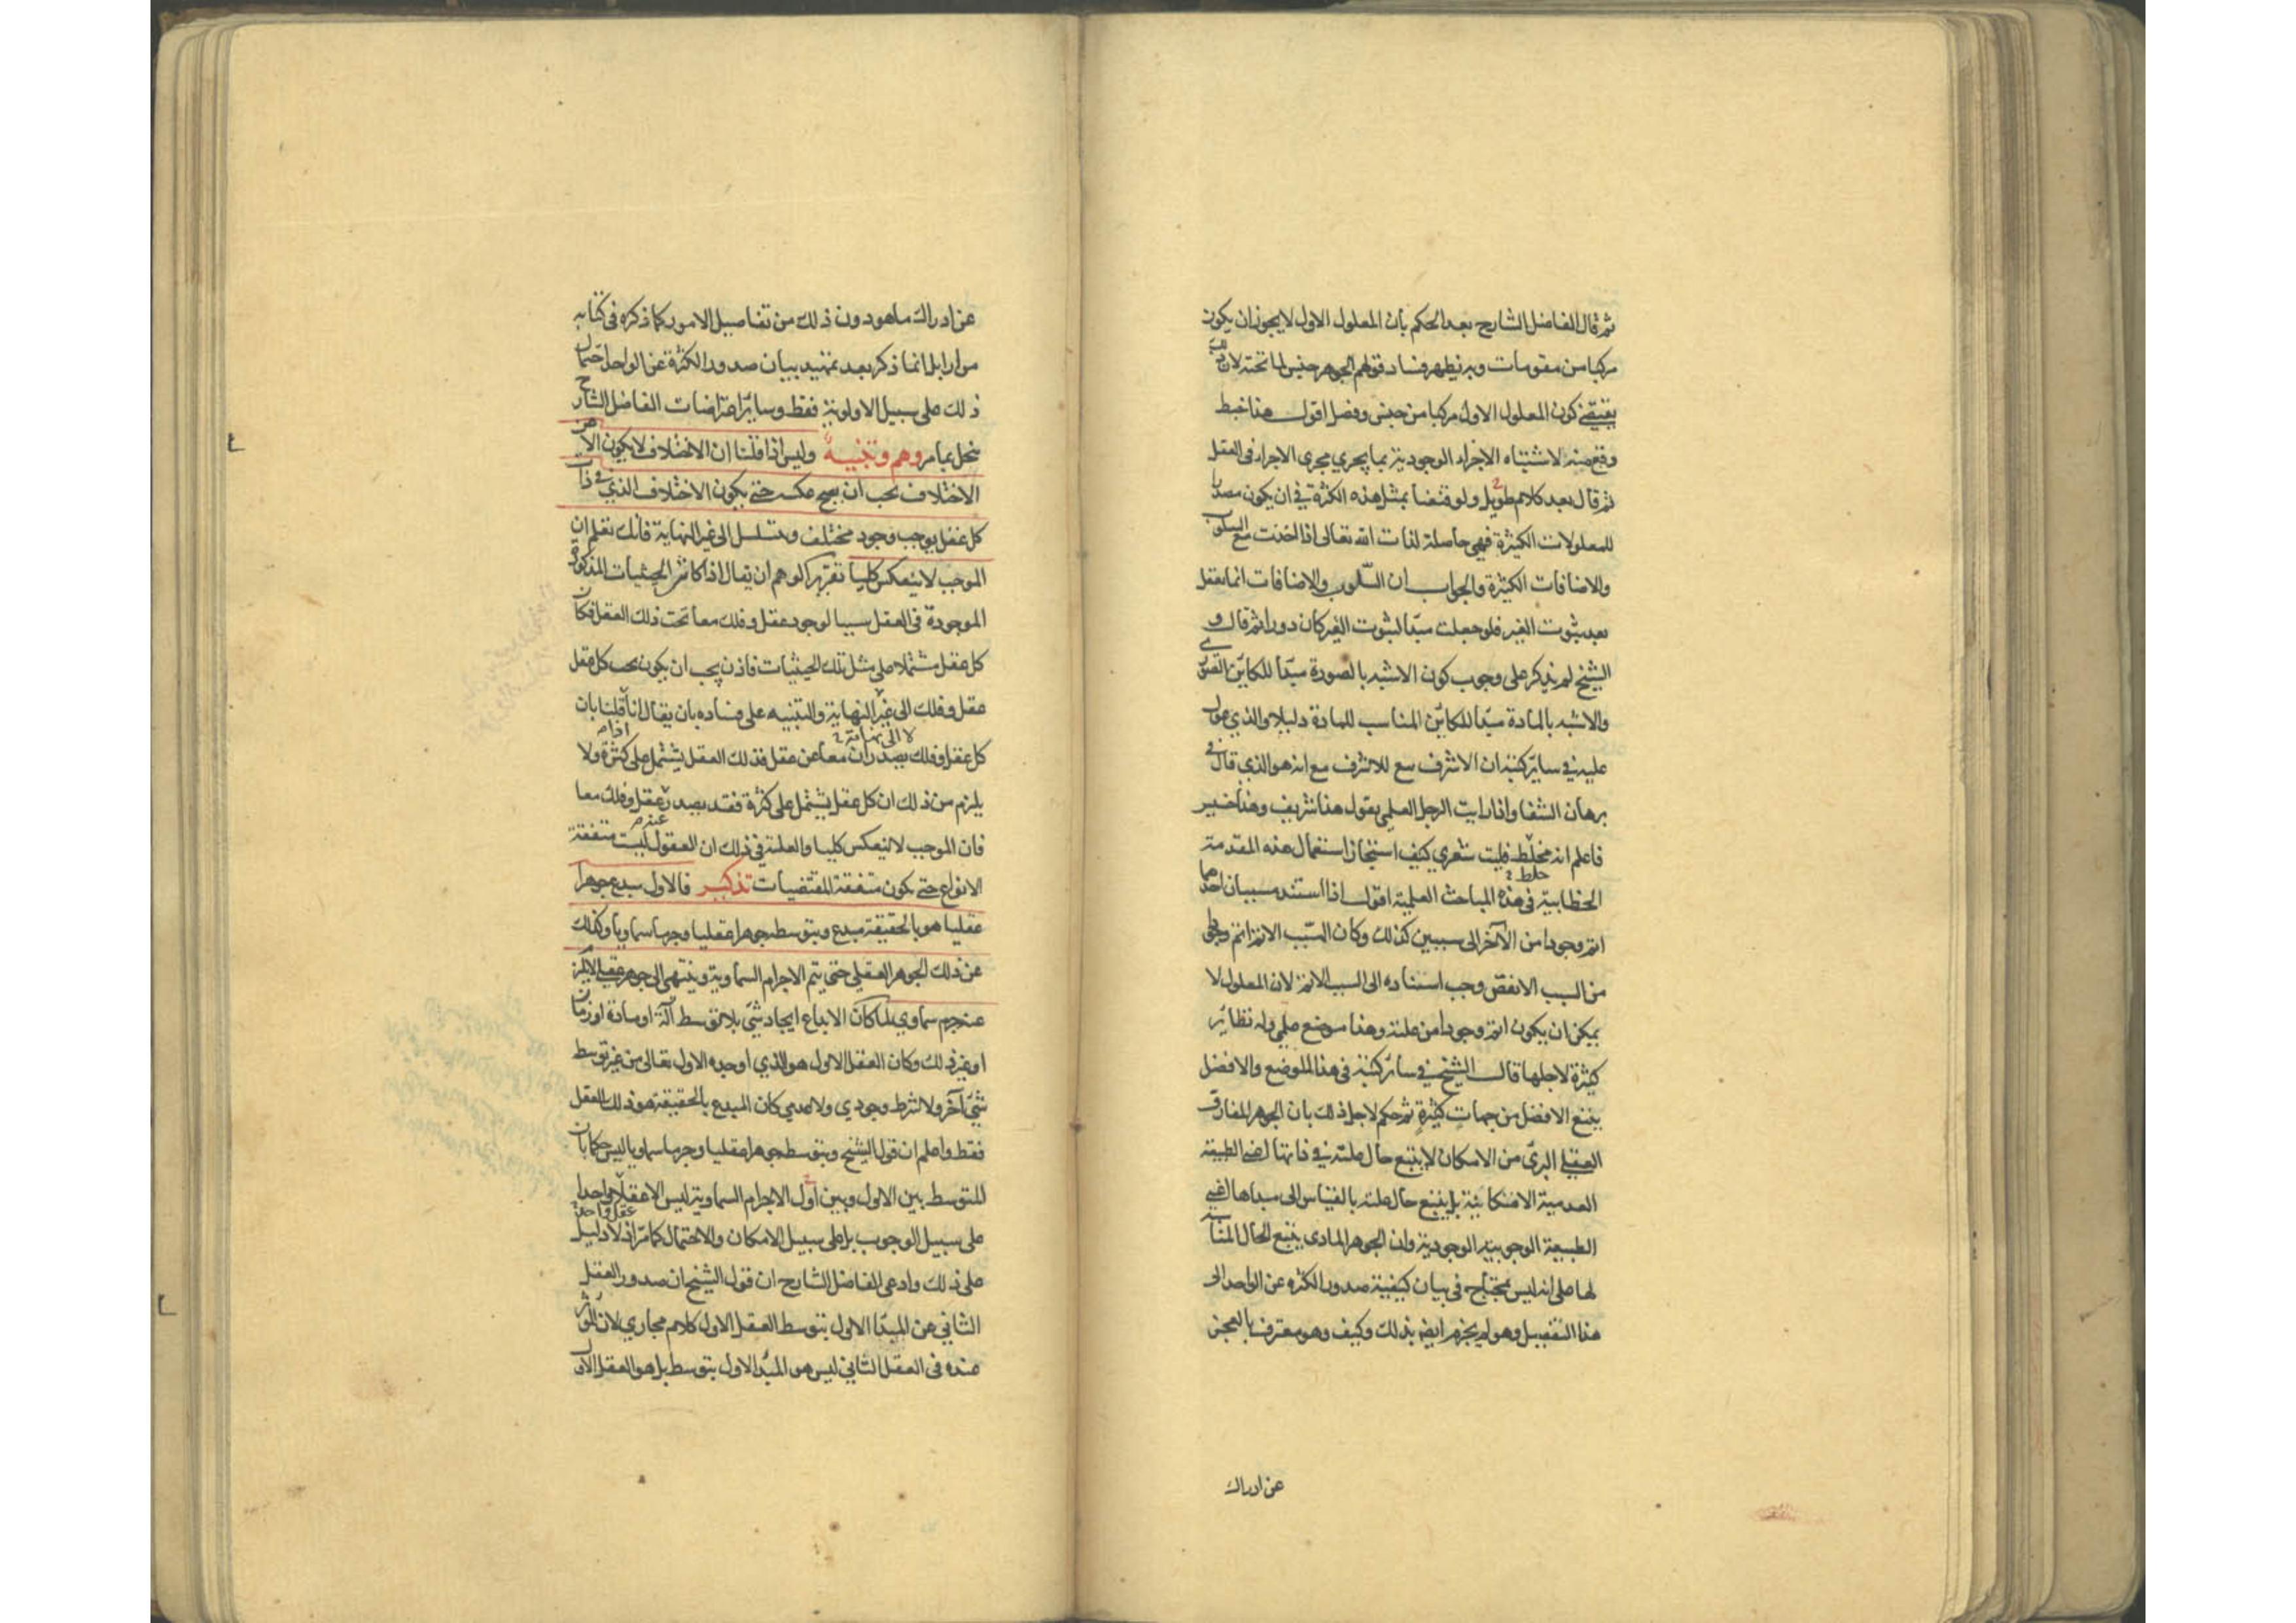 ثم قال الفاضل الشارح بعد الحكم بان المعلول الاول لا يجوز ان يكون
مركبا من مقومات وبه يظهر فساد قولهم الجوهر جنس لما تحته لان ذلك
يقتضي كون المعلول الاول مركبا من جنس وفصل اقول هذا خبط
وقع منه لاشتباه الاجزاء الوجودية بما يجري مجرى الاجزاء في العقل
ثم قال بعد كلام طويل ولو قنعنا بمثل هذه الكثرة في ان يكون مصدرا
للمعلولات الكثيرة فهي حاصلة لذات الله تعالى اذا اخذت مع السلوب
والاضافات الكثيرة والجواب ان السلوب والاضافات انما يعقل
بعد ثبوت الغير فلو جعلت مبدأ لثبوت الغير كان دورا ثم قال و
الشيخ لم يذكر على وجوب كون الاشبه بالصورة مبدأ للكاين الصوري
والاشبه بالمادة مبدأ للكاين المناسب للمادة دليلا والذي عول
عليه في ساير كتبه ان الاشرف يتبع للاشرف مع انه هو الذي قال في
برهان الشفا واذا رايت الرجل العلمي يقول هذا شريف وهذا خسير
فاعلم انه مخلط فليت شعري كيف استجاز استعمال هذه المقدمة
خلط
الخطابية في هذه المباحث العلمية اقول اذا استند مسببان احدهما
اتم وجودا من الآخر الى سببين كذلك وكان السبب الاتم اتم وجودا
من السبب الانقص وجب استناده الى السبب الاتم لان المعلول لا
يمكن ان يكون اتم وجودا من علته وهذا موضع علمي وله نظاير
كثيرة لاجلها قال الشيخ في ساير كتبه في هذا الموضع والافضل
يتبع الافضل من جهات كثيرة ثم حكم لاجل ذلك بان الجوهر المفارق
العقلي البرئ من الامكان لا يتبع حال علته في ذاتها لضى الطبيعة
العدمية الامكانية بل يتبع حال علته بالقياس الى مبداها الغنى
الطبيعة الوجوبية الوجودية وان الجوهر المادى يتبع الحال المناسبة
لها على انه ليس بمحتاج في بيان كيفية صدور الكثرة عن الواحد الى
هذا التفصيل وهو لم يجزم ايضا بذلك وكيف وهو معترف بالعجز
عن ادراك
عن ادراك ما هو دون ذلك من تفاصيل الامور كما ذكره في كتابه
مرارا بل انما ذكر بعد تمهيد بيان صدور الكثرة عن الواحد احتمال
ذلك على سبيل الاولوية فقط وساير اعتراضات الفاضل الشارح
ينحل بما مر وهم وتنبيه وليس اذا قلنا ان الاختلاف لا يكون الا عن
الاختلاف يجب ان يصح عكسه حتى يكون الاختلاف الذي في ذات
كل عقل يوجب وجود مختلف ويتسلسل الى غير النهاية فانك تعلم ان
الموجب لا ينعكس كليا تقرير الوهم ان يقال اذا كانت الحيثيات المذكورة
الموجودة في العقل سببا لوجود عقل وفلك معا تحت ذلك العقل فكان
كل عقل مشتملا على مثل تلك الحيثيات فاذن يجب ان يكون تحت كل عقل
عقل وفلك الى غير النهاية والتنبيه على فساده بان يقال انا قلنا بان
لا الى نهاية
اذا
كل عقل وفلك يصدران معا عن عقل فذلك العقل يشتمل على كثرة ولا
يلزم من ذلك ان كل عقل يشتمل على كثرة فقد يصدر عقل وفلك معا
عنه
فان الموجب لا ينعكس كليا والعلة في ذلك ان العقول ليست متفقة
الانواع حتى يكون متفقة المقتضيات تذكير فالاول يبدع جوهرا
عقليا هو بالحقيقة مبدع وبتوسطه جوهرا عقليا وجرما سماويا وكذلك
عن ذلك الجوهر العقلي حتى يتم الاجرام السماوية وينتهى الى جوهر عقلي لا يلزم
عنه جرم سماوي لما كان الابداع ايجاد شئ بلا توسط آلة او مادة او زمان
او غير ذلك وكان العقل الاول هو الذي اوجده الاول تعالى من غير توسط
شئ آخر ولا شرط وجودي ولا عدمي كان المبدع بالحقيقة هو ذلك العقل
فقط واعلم ان قول الشيخ وبتوسطه جوهرا عقليا وجرما سماويا ليس حكما بان
المتوسط بين الاول وبين اول الاجرام السماوية ليس الا عقلا واحدا
عقل واحد
على سبيل الوجوب بل على سبيل الامكان والاحتمال كما مر اذ لا دليل
على ذلك وادعى الفاضل الشارح ان قول الشيخ ان صدور العقل
الثاني عن المبدأ الاول بتوسط العقل الاول كلام مجازي لان المؤثر
عنده في العقل الثاني ليس هو المبدأ الاول بتوسط بل هو العقل الاول